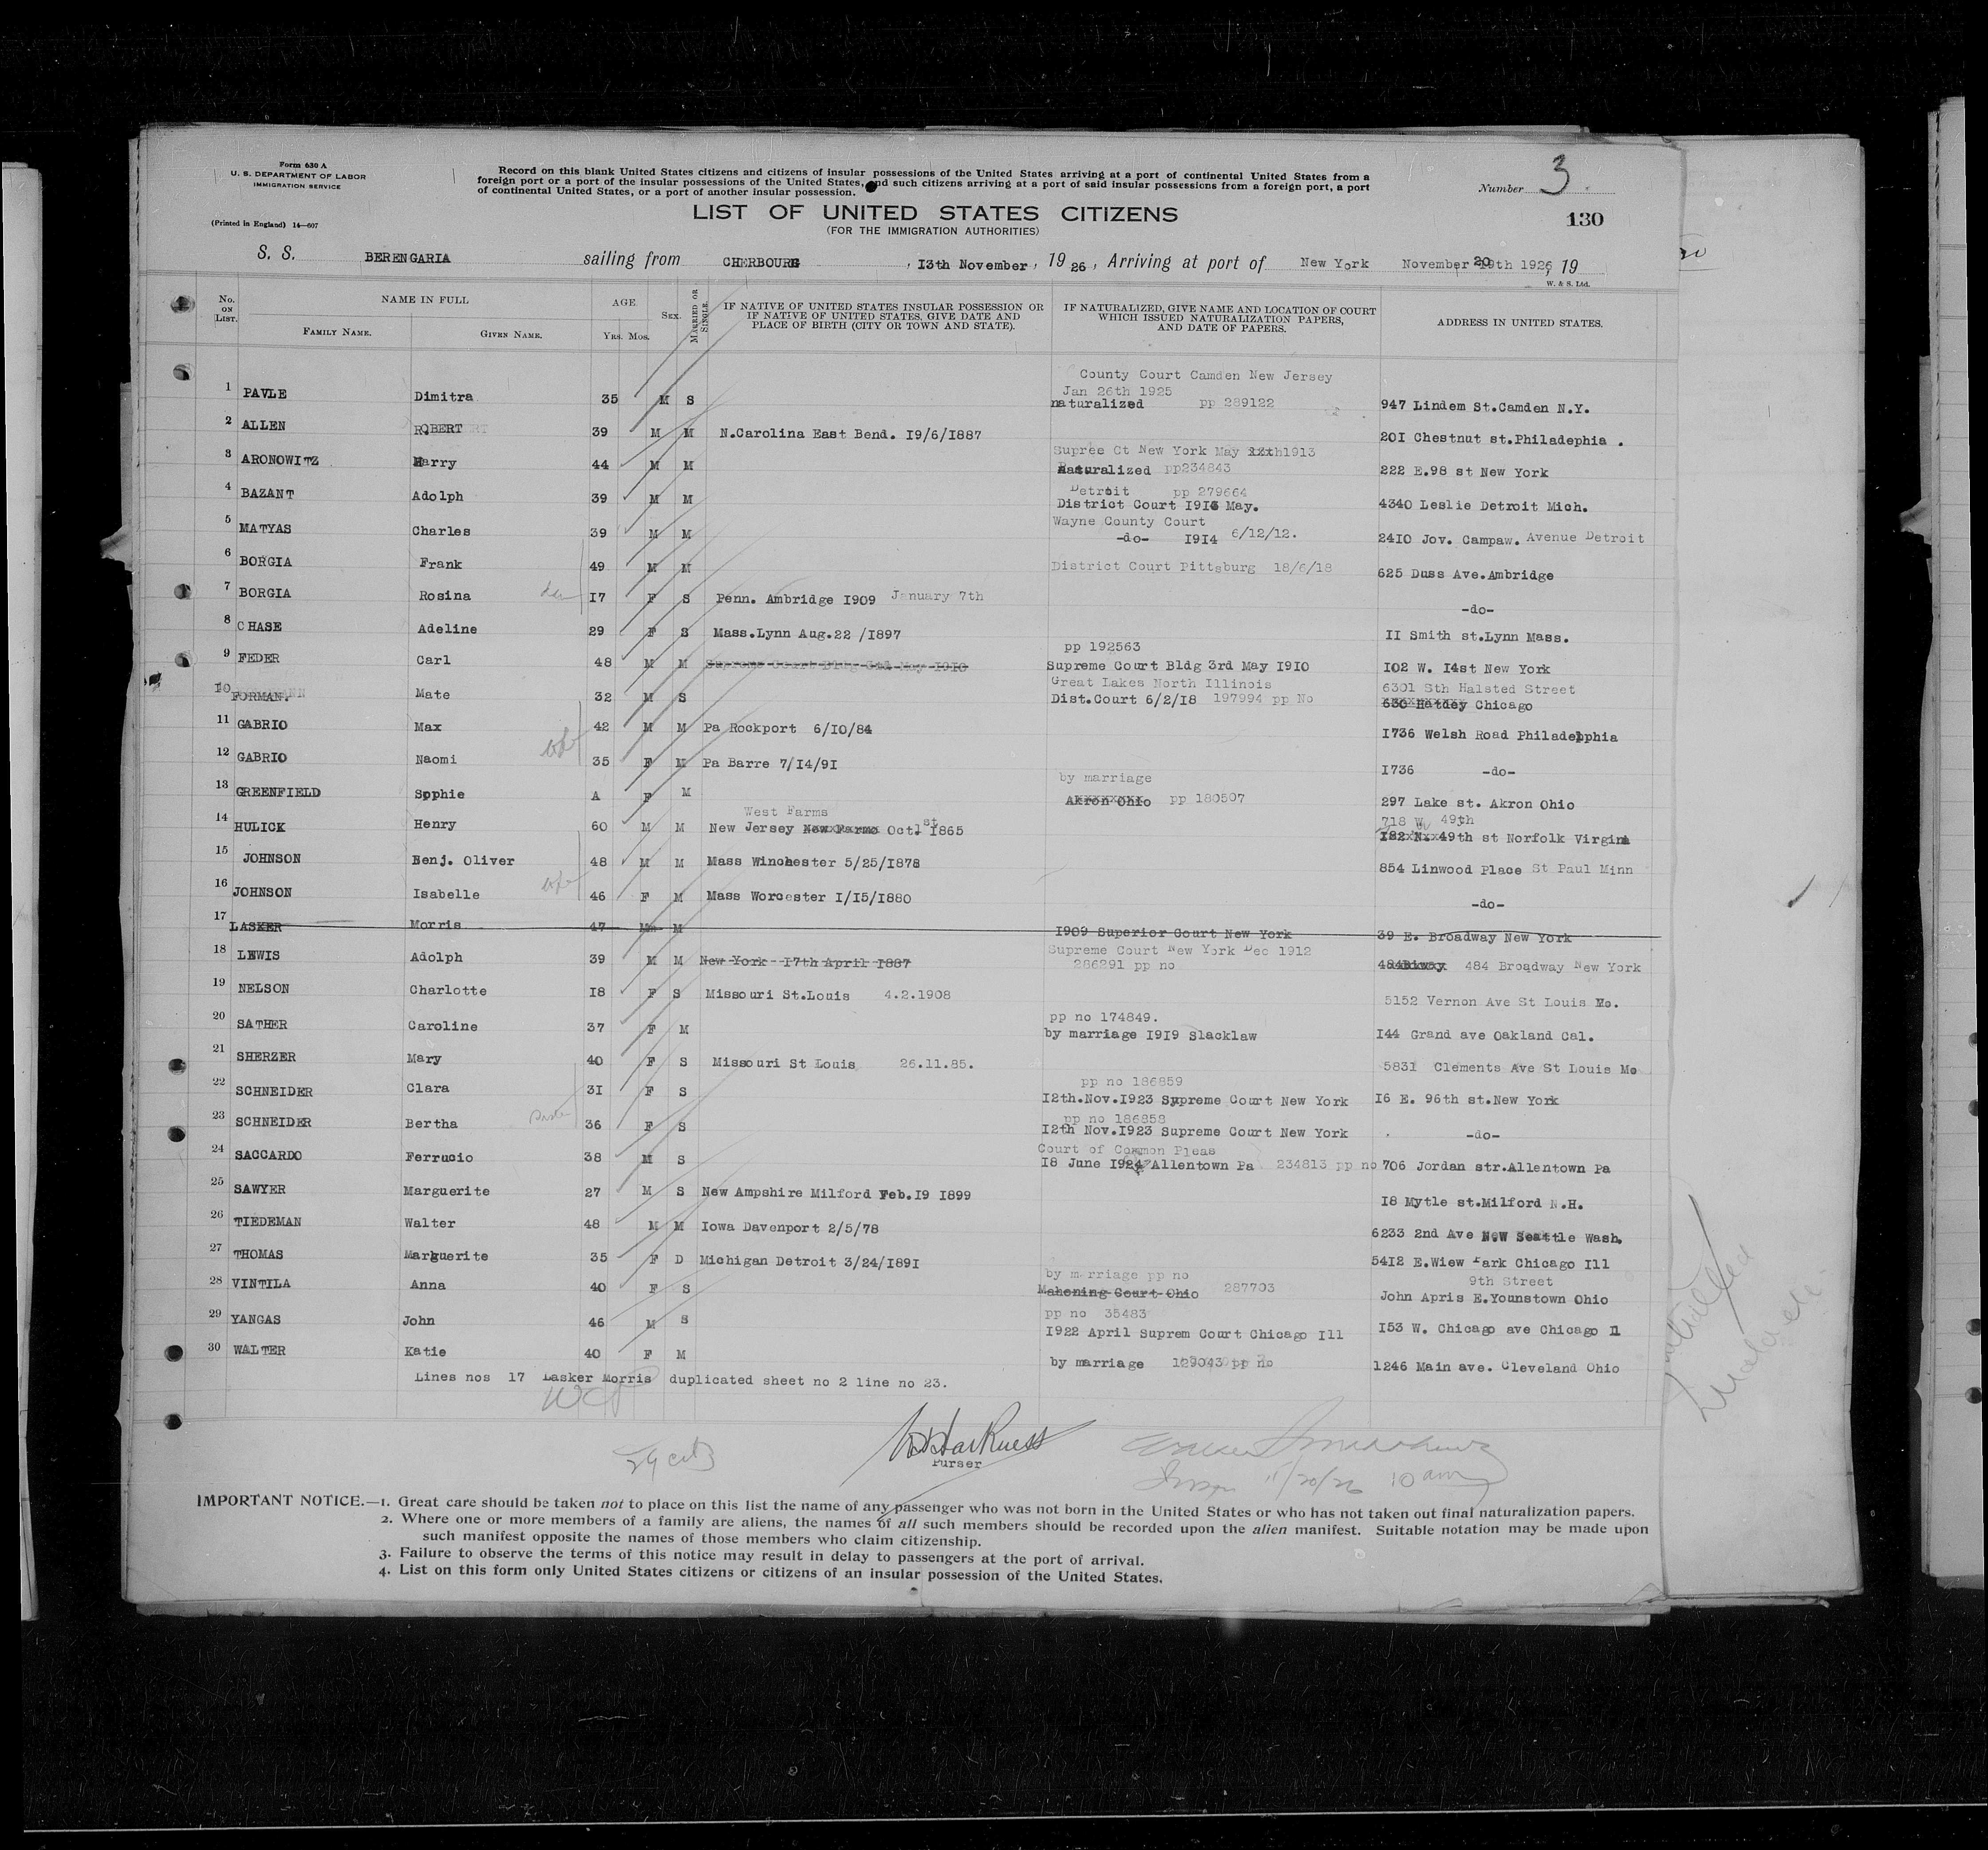 Form 630 A
U. S. DEPARTMENT OF LABOR
IMMIGRATION SERVICE
(Printed in England) 14—607
Record on this blank United States citizens and citizens of insular possessions of the United States arriving at a port of continental United States from a
foreign port or a port of the insular possessions of the United States, and such citizens arriving at a port of said insular possessions from a foreign port, a port
of continental United States, or a port of another insular possession.
Number 3
LIST OF UNITED STATES CITIZENS
(FOR THE IMMIGRATION AUTHORITIES)
130
S. S. BERENGARIA sailing from CHERBOURG, 13th November, 1926, Arriving at port of New York November 20th 1926, 19
W. & S. Ltd.
No. ON LIST. NAME IN FULL AGE SEX. MARRIED OR SINGLE. IF NATIVE OF UNITED STATES INSULAR POSSESSION OR IF NATIVE OF UNITED STATES, GIVE DATE AND PLACE OF BIRTH (CITY OR TOWN AND STATE). IF NATURALIZED, GIVE NAME AND LOCATION OF COURT WHICH ISSUED NATURALIZATION PAPERS, AND DATE OF PAPERS. ADDRESS IN UNITED STATES.
FAMILY NAME. GIVEN NAME. YRS. MOS.
County Court Camden New Jersey
Jan 26th 1925
1 PAVLE Dimitra 35 M S naturalized pp 289122 947 Lindem St.Camden N.Y.
2 ALLEN ROBERT 39 M M N.Carolina East Bend. I9/6/I887 20I Chestnut st.Philadephia .
Supree Ct New York May 12th1913
3 ARONOWITZ Harry 44 M M Naturalized pp234843 222 E.98 st New York
Detroit pp 279664
4 BAZANT Adolph 39 M M District Court I916 May. 4340 Leslie Detroit Mich.
Wayne County Court
5 MATYAS Charles 39 M M -do- I9I4 6/12/12. 24IO Jov. Campaw. Avenue Detroit
6 BORGIA Frank 49 M M District Court Pittsburg 18/6/18 625 Duss Ave.Ambridge
7 BORGIA Rosina I7 F S Penn. Ambridge I909 January 7th -do-
8 CHASE Adeline 29 F S Mass.Lynn Aug.22 /I897 II Smith st.Lynn Mass.
pp 192563
9 FEDER Carl 48 M M Supreme Court Bldg 3rd May I9IO Supreme Court Bldg 3rd May I9IO IO2 W. I4st New York
Great Lakes North Illinois 6301 Sth Halsted Street
10 FORMAN. Mate 32 M S Dist.Court 6/2/I8 197994 pp No 630 Hatdey Chicago
11 GABRIO Max 42 M M Pa Rockport 6/IO/84 I736 Welsh Road Philadelphia
12 GABRIO wife Naomi 35 F M Pa Barre 7/I4/9I I736 -do-
by marriage
13 GREENFIELD Sophie A F M Akron Ohio pp 180507 297 Lake st. Akron Ohio
West Farms 718 W 49th
14 HULICK Henry 60 M M New Jersey New Farms Oct. 1st I865 I82 N. 49th st Norfolk Virgina
15 JOHNSON Benj. Oliver 48 M M Mass Winchester 5/25/I878 854 Linwood Place St Paul Minn
16 JOHNSON wife Isabelle 46 F M Mass Worcester I/I5/I880 -do-
17 LASKER Morris 47 M M I909 Superior Court New York 39 E. Broadway New York
Supreme Court New York Dec 1912
18 LEWIS Adolph 39 M M New York I7th April I887 286291 pp no 484Biway 484 Broadway New York
19 NELSON Charlotte I8 F S Missouri St.Louis 4.2.1908 5152 Vernon Ave St Louis Mo.
pp no 174849.
20 SATHER Caroline 37 F M by marriage I9I9 Slacklaw I44 Grand ave Oakland Cal.
21 SHERZER Mary 40 F S Missouri St Louis 26.11.85. 5831 Clements Ave St Louis Mo
pp no 186859
22 SCHNEIDER Clara 3I F S I2th.Nov.I923 Supreme Court New York I6 E. 96th st.New York
pp no 186858
23 SCHNEIDER sister Bertha 36 F S I2th Nov.I923 Supreme Court New York -do-
Court of Common Pleas
24 SACCARDO Ferrucio 38 M S I8 June I924 Allentown Pa 234813 pp no 706 Jordan str.Allentown Pa
25 SAWYER Marguerite 27 M S New Ampshire Milford Feb.I9 I899 I8 Mytle st.Milford N.H.
26 TIEDEMAN Walter 48 M M Iowa Davenport 2/5/78 6233 2nd Ave N.W Seattle Wash.
27 THOMAS Marguerite 35 F D Michigan Detroit 3/24/I89I 54I2 E.Wiew Park Chicago Ill
by marriage pp no 9th Street
28 VINTILA Anna 40 F S Mahoning Court Ohio 287703 John Apris E.Younstown Ohio
pp no 35483
29 YANGAS John 46 M S I922 April Suprem Court Chicago Ill I53 W. Chicago ave Chicago Il
30 WALTER Katie 40 F M by marriage 129043 pp no 1246 Main ave. Cleveland Ohio
Lines nos 17 Lasker Morris duplicated sheet no 2 line no 23.
Purser
11/20/26 10 am
IMPORTANT NOTICE.—1. Great care should be taken not to place on this list the name of any passenger who was not born in the United States or who has not taken out final naturalization papers.
2. Where one or more members of a family are aliens, the names of all such members should be recorded upon the alien manifest. Suitable notation may be made upon
such manifest opposite the names of those members who claim citizenship.
3. Failure to observe the terms of this notice may result in delay to passengers at the port of arrival.
4. List on this form only United States citizens or citizens of an insular possession of the United States.